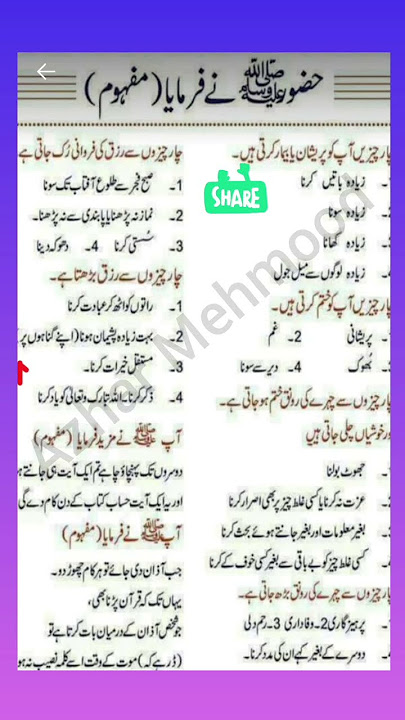 حضور ﷺ نے فرمایا (مفہوم)
چار چیزیں آپ کو پریشان یا بیمار کرتی ہیں۔
زیادہ باتیں کرنا
زیادہ سونا
زیادہ کھانا
زیادہ لوگوں سے میل جول
چار چیزیں آپ کو ختم کرتی ہیں۔
پریشانی 2۔ غم
بھوک 4۔ دیر سے سونا
چار چیزوں سے چہرے کی رونق ختم ہو جاتی ہے۔
ور خوشیاں چلی جاتی ہیں
جھوٹ بولنا
عزت نہ کرنا یا کسی غلط چیز پر بھی اصرار کرنا
بغیر معلومات اور بغیر جانتے ہوئے بحث کرنا
کسی غلط چیز کو بے باقی سے بغیر کسی خوف کے کرنا
چار چیزوں سے چہرے کی رونق بڑھ جاتی ہے۔
پرہیزگاری 2۔ وفاداری 3۔ رحم دلی
4۔ دوسرے کے بغیر کہے ان کی مدد کرنا۔
چار چیزوں سے رزق کی فروانی رُک جاتی ہے
1۔ صبح فجر سے طلوع آفتاب تک سونا
2۔ نماز نہ پڑھنا یا پابندی سے نہ پڑھنا۔
3۔ سُستی کرنا 4۔ دھوکہ دینا
چار چیزوں سے رزق بڑھتا ہے۔
1۔ راتوں کو اٹھ کر عبادت کرنا
2۔ بہت زیادہ پشیمان ہونا (اپنے گناہوں پر
3۔ مستقل خیرات کرنا۔
4۔ ذکر کرنا۔ اللہ تبارک وتعالیٰ کو یاد کرنا
آپ ﷺ نے مزید فرمایا (مفہوم)
دوسروں تک پہنچاؤ چاہے تم ایک آیت ہی جانتے ہو
اور یہ ایک آیت حساب کتاب کے دن کام دے گی
آپ ﷺ نے فرمایا (مفہوم)
جب آذان دی جائے تو ہر کام چھوڑ دو۔
یہاں تک کہ قرآن پڑنا بھی،
جو شخص آذان کے درمیان بات کرتا ہے تو
(ڈر ہے کہ) موت کے وقت اسے کلمہ نصیب نہ ہو
SHARE
Azhar Mehmood